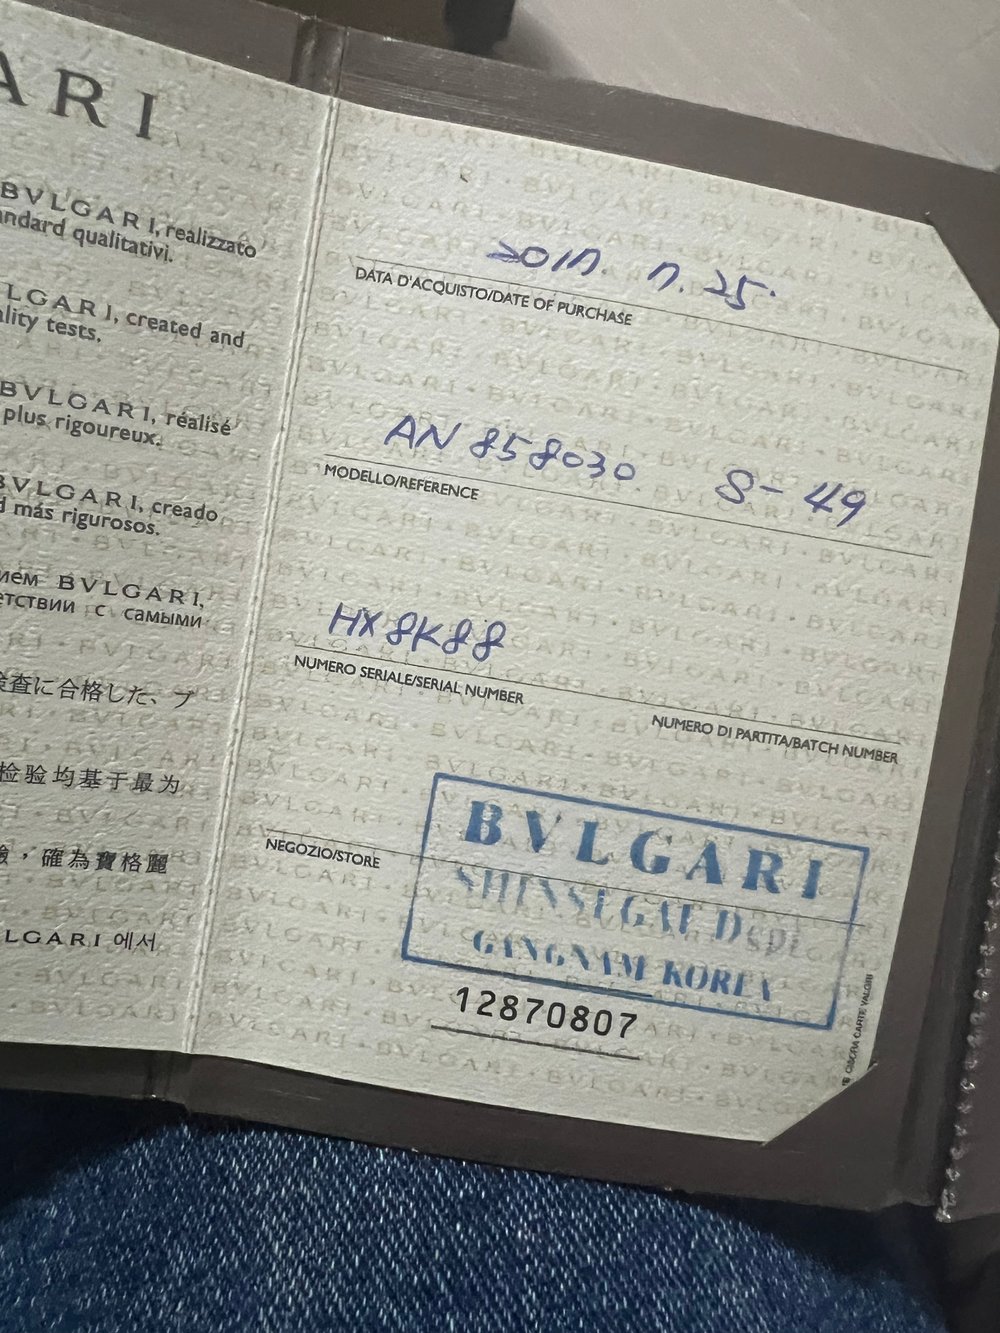 ARI
BVLGARI, realizzato
andard qualitativi.
LGARI, created and
ality tests.
BVLGARI, réalisé
plus rigoureux.
BVLGARI, creado
más rigurosos.
BVLGARI,
с самыми
検査に合格した、ブ
检验均基于最为
，確為寶格麗
LGARI 에서
2017. 7. 25.
DATA D'ACQUISTO/DATE OF PURCHASE
AN 858030 S-49
MODELLO/REFERENCE
HX8K88
NUMERO SERIALE/SERIAL NUMBER
NUMERO DI PARTITA/BATCH NUMBER
NEGOZIO/STORE
BVLGARI
SHINSEGAE Dept
GANGNAM KOREA
12870807
CARTE VALORI